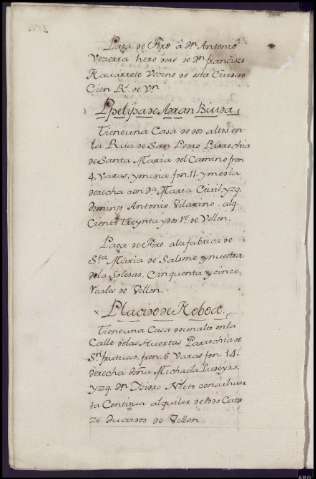 Paga de fixo á Dn. Antonio
Vezerra heredero de Dn. francisco
Navarrete Vecino de esta Ciudad
Cien Rs. de Vn.
Phelipa de Abran Biuda.
Tiene una Casa de dos altos en
la Rua de San Pedro Parroquia
de Santa Maria del Camino fon.
4. varas, y media fon. 11. y media
derecha con Da. Maria y yzq.
domingo Antonio Vilarino alq.
Ciento treynta y dos Rs. de Vellon.
Paga de fixo ala fabrica de
Sta. Maria de Salome y nuestra
dela Soledad, Cinquenta y cinco
reales de Vellon.
Placido de Reboredo.
Tiene una Casa de un alto en la
Calle delas Huertas Parrochia de
Sn. fructuoso, fron. 6. Varas fon. 14.
derecha doña Michaela
y yzq. Dn. Nieto
ta Contigua alquiler de dos Cato
de Vellon.